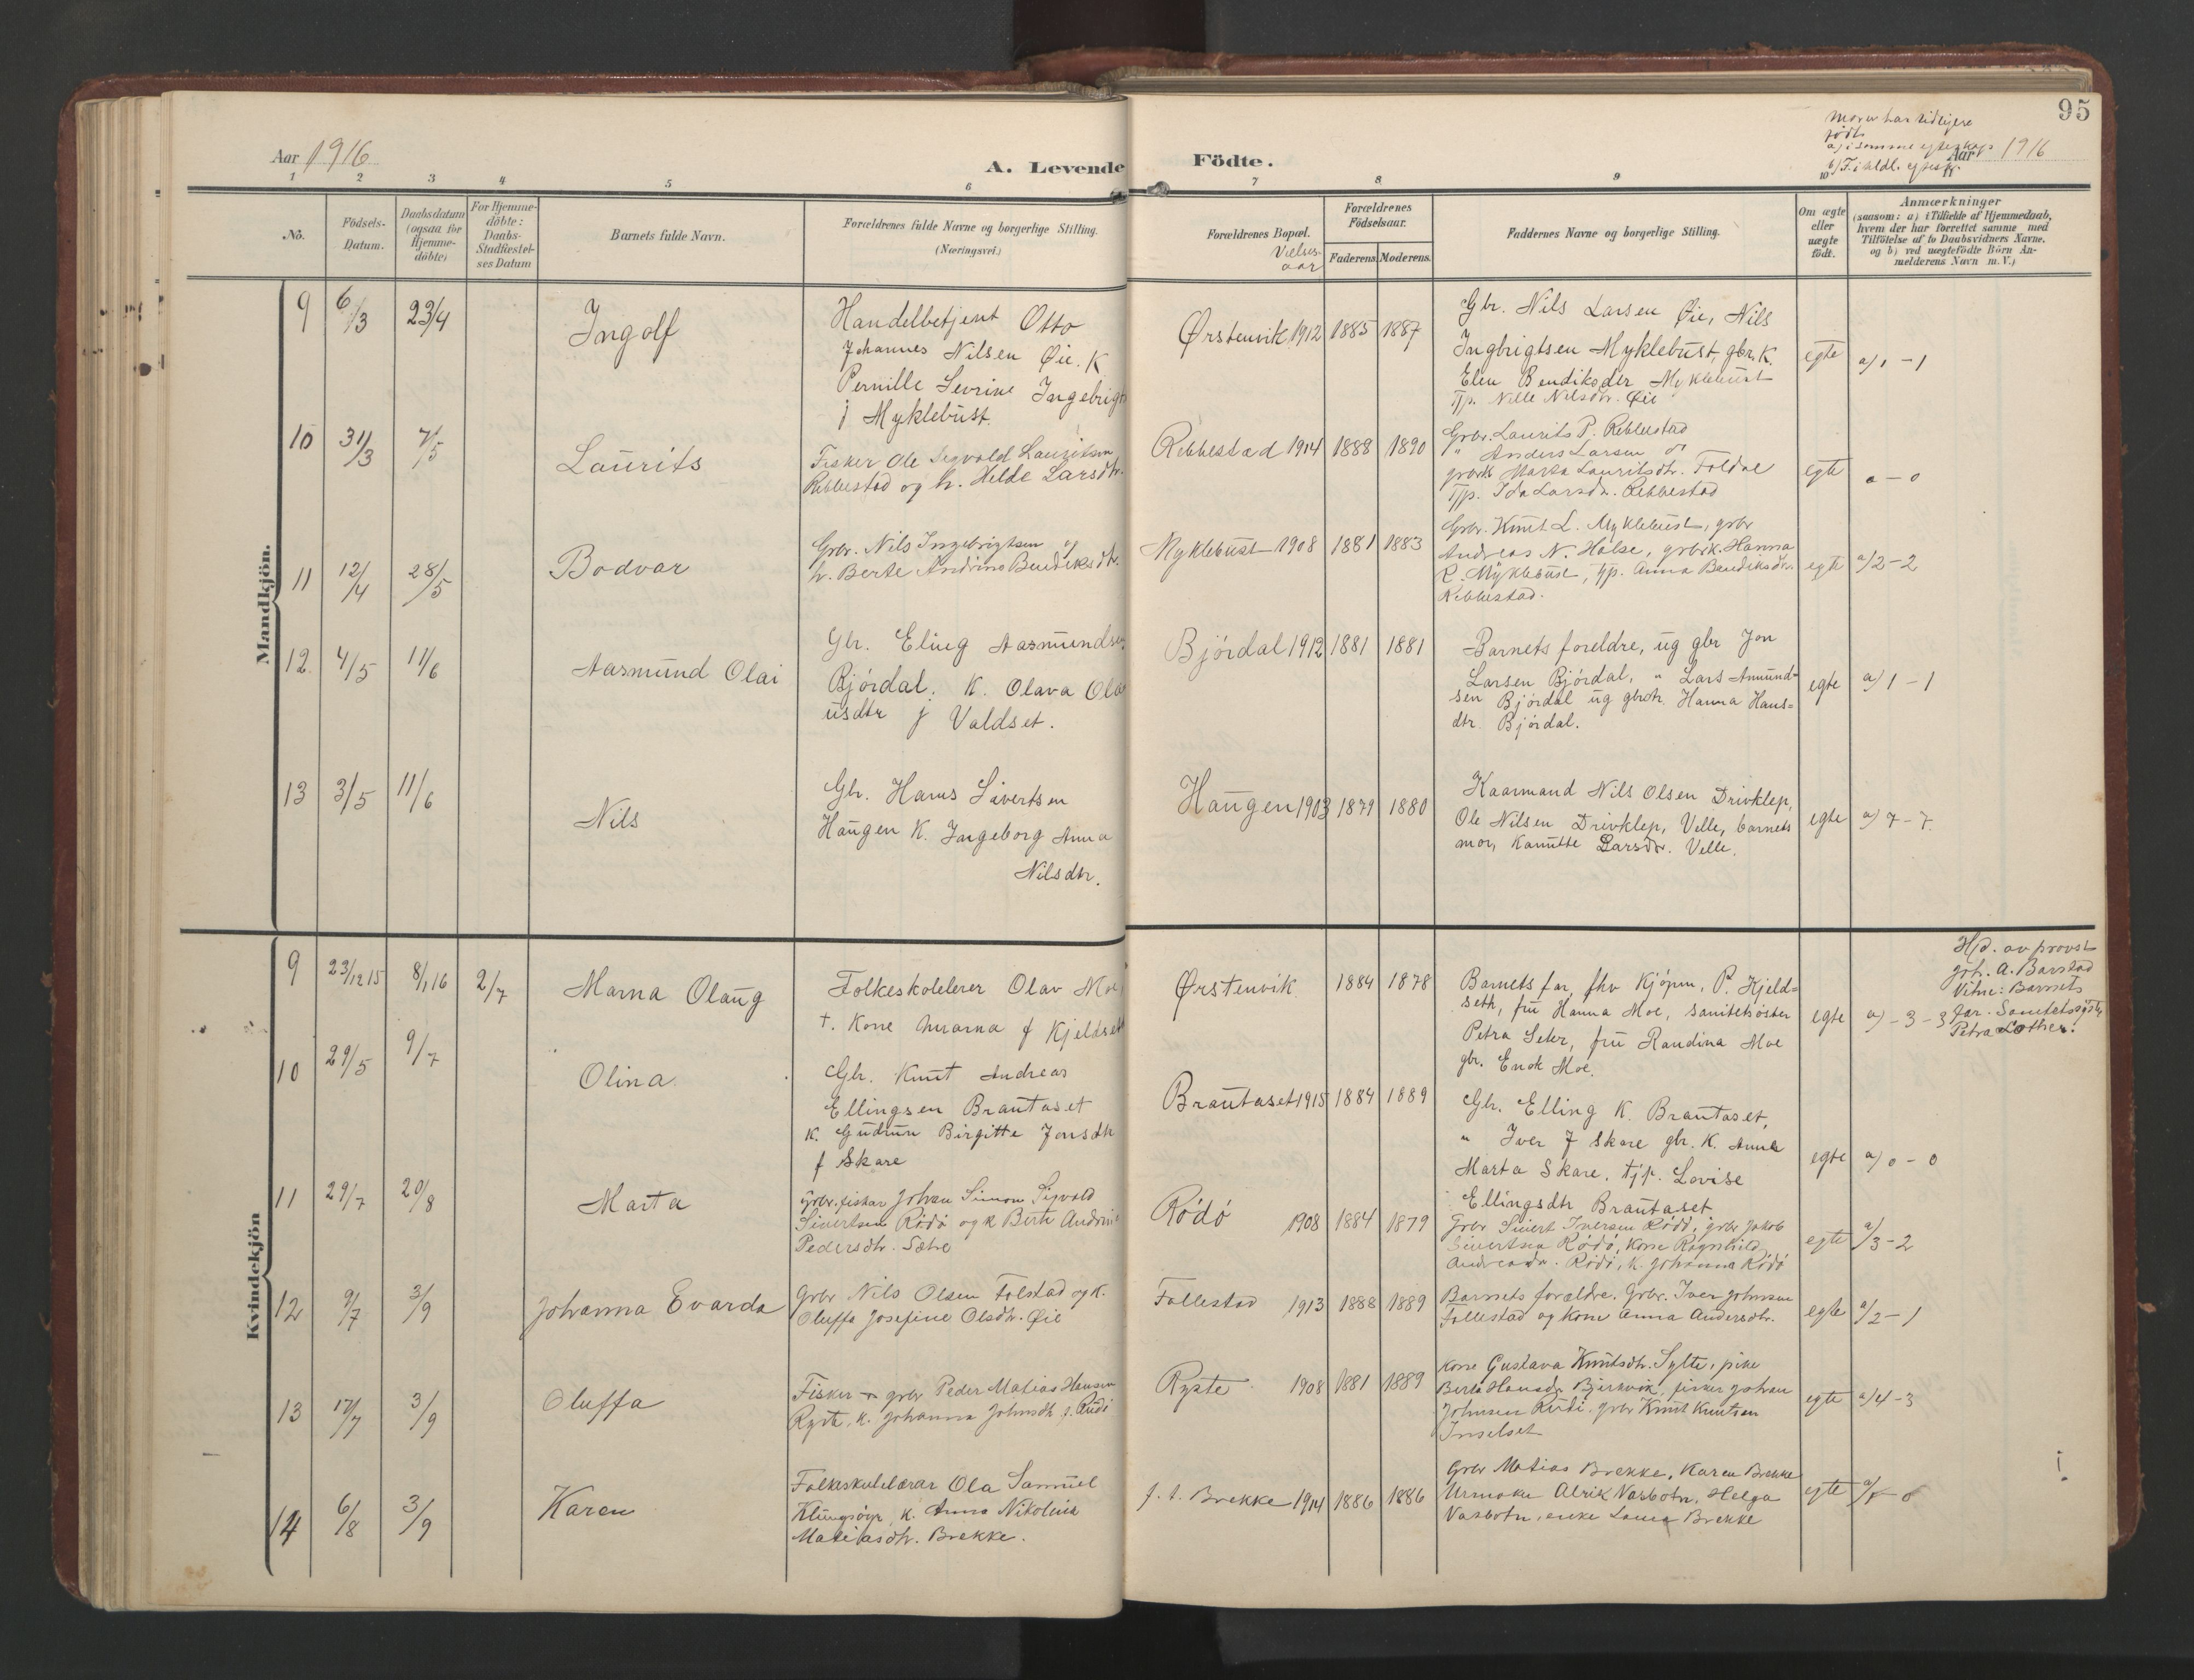 95
Aar 1916
A. Levende Födte.
Mora har tidligere
födt
a) i samme egteskap
b) F. i tidl. egtesk.
Aar 1916
1 2 3 4 5 6 7 8 9 10
No.
Födsels-
Datum.
Daabsdatum
(ogsaa for
Hjemme-
döbte)
For Hjemme-
döbte:
Daabs-
Stadfæstel-
ses Datum
Barnets fulde Navn.
Forældrenes fulde Navne og borgerlige Stilling.
(Næringsvei.)
Forældrenes Bopæl.
Vielses-
aar
Forældrenes
Födselsaar.
Faderens. Moderens.
Faddernes Navne og borgerlige Stilling.
Om ægte
eller
uægte
födt.
Anmærkninger
(saasom: a) i Tilfælde af Hjemmedaab,
hvem der har forrettet samme med
Tilföielse af to Daabsvidners Navne.
og b) ved uægtefödte Börn An-
melderens Navn m. V.)
Mandkjön.
9 6/3 23/4
Ingolf
Handelbetjent Otto
Johannes Nilsen Øie. K
Pernille Sevrine Ingebrigts
f Myklebust.
Ørstenvik 1912 1885 1887
Gbr. Nils Larsen Øie, Nils
Ingbrigtsen Myklebust, gbr. K.
Elen Bendiksdtr Myklebust
Tjp. Nille Nilsdtr. Øie
egte a) 1 - 1
10 31/3 7/5
Laurits
Fisker Ole Sigvald Lauritsen
Ribbestad og h. Helde Larsdtr.
Ribbestad 1914 1888 1890
Grbr. Laurits P. Ribbestad
" Anders Larsen "
grbrk Marta Lauritsdtr. Foldal
Tjp. Ida Larsdr. Ribbestad
egte 0 - 0
11 12/4 28/5
Bodvar
Grbr. Nils Ingebrigtsen og
h. Berte Andrine Bendiksdtr.
Myklebust 1908 1881 1883
Grbr. Knut L. Myklebust, grbr
Andreas N. Halse, grbrk. Hanna
R. Myklebust, tjp. Anna Bendiksdr.
Ribbestad.
egte a) 2 - 2
12. 4/5 11/6
Aasmund Olai
Gbr. Eling Aasmundsen
Bjórdal. K. Olava Ola
usdtr f Valdset.
Bjórdal 1912 1881 1881
Barnets foreldre, ug gbr Jon
Larsen Bjórdal, " Lars Amund-
sen Bjórdal ug gbrdtr. Hanna Hans=
dtr. Bjórdal.
egte a) 1 - 1
13 3/5 11/6
Nils
Gbr. Hans Sivertsen
Haugen K. Ingeborg Anna
Nilsdtr.
Haugen 1903 1879 1880
Kaarmand Nils Olsen Drivklep,
Ole Nilsen Drivklep, Velle, barnets
mor, Kanutte Larsdr. Velle.
egte a) 7 - 7.
Kvindekjön
9 23/12 15 8/1 16 2/7
Marna Olaug
Folkeskolelerer Olav Moe
+. Kone Marna f Kjeldset
Ørstenvik 1884 1878
Barnets far, fhv Kjópm. P. Kjeld=
seth, fru Hanna Moe, sanitetsóster
Petra Seter, fru Randina Moe
gbr. Enok Moe.
egte a) - 3 - 3
Hjd. av provst
Joh. A. Barstad
Vitne: Barnets
far. Sanitetssyster
Petra Sæther.
10 29/5 9/7
Olina
Gbr. Knut Andreas
Ellingsen Brautaset
K. Gudrun Birgitte Jonsdtr
f Skare
Brautaset 1915 1884 1889
Gbr. Elling K. Brautaset,
" Iver J Skare gbr. K. Anna
Marta Skare. tjp. Lovise
Ellingsdtr Brautaset
egte a) 0 - 0
11 29/7 20/8
Marta
Grbr. fisker Johan Simon Sigvald
Sivertsen Ródó og k Berte Andrine
Pedersdtr. Sætre
Ródó 1908 1884 1879
Grbr Sivert Iversen Ródó, grbr Jakob
Sivertsen Ródó, Kone Ragnhild
Andreasdr. Ródó, K. Johanna Ródó
egte a) 3 - 2
12 9/7 3/9
Johanna Evarda
Grbr Nils Olsen Folstad og K.
Oluffa Josefine Olsdtr. Øie
Follestad 1913 1888 1889
Barnets forældre. Grbr. Iver Johnsen
Follestad og Kone Anna Andersdtr.
egte a) 2 - 1
13 17/7 3/9
Oluffa
Fisker grbr Peder Matias Hansen
Ryste, K. Johanna Johnsdtr f. Rudi
Ryste 1908 1881 1889
Kone Gustava Knutsdtr. Sylte, pike
Berta Hansdr Bjørkvik, fisker Johan
Johnsen Rudi. grbr Knut Knutsen
Inselset
egte a) 4 - 3
14 6/8 3/9
Karen
Folkeskulelærar Ola Samuel
Klungsöyr, K. Anna Nikolina
Matiasdtr. Brekke.
f. t. Brekke 1914 1886 1886
Grbr Matias Brekke, Karen Brekke
Urmaker Alrik Vasbotn, Helga
Vasbotn, enke Lovisa Brekke
egte a) - 0